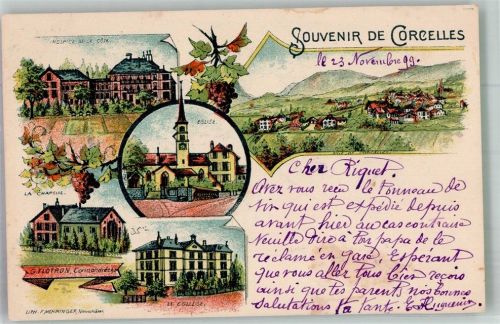 HOSPICE DE LA CÔTE
SOUVENIR DE CORCELLES
le 23 Novembre 99.
EGLISE
LA CHAPELLE
Cher Riquet.
Avez vous reçu le tonneau de
vin qui est expédié depuis
avant hier au cas contraire
veuille dire à ton papa de le
réclamer en gare. Esperant
que vous allez tous bien reçois
ainsi que tes parents nos bonnes
salutations Ta Tante
G. FLOTRON, Cormondrèche
LE COLLÈGE
LITH. F. MEHRINGER, Neuchâtel.